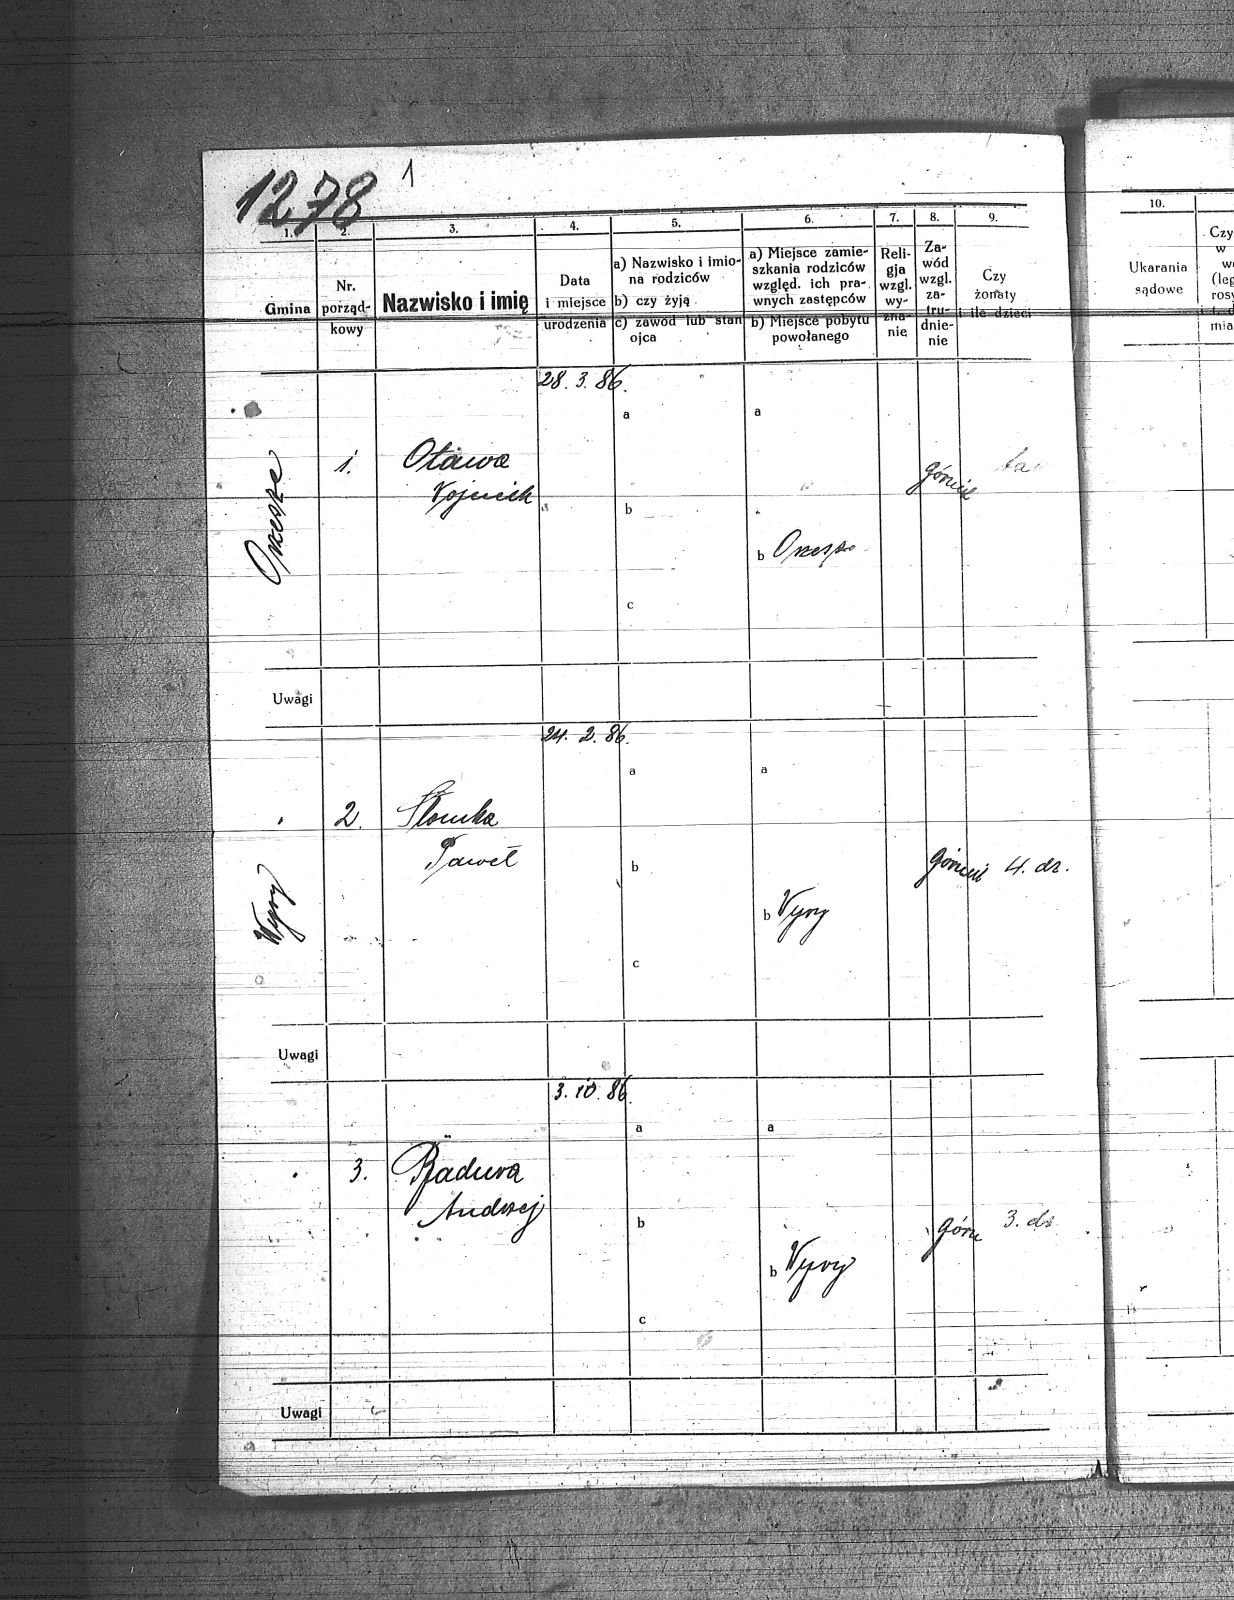 1278 1
1. 2. 3. 4. 5. 6. 7. 8. 9.
Gmina
Nr. porząd-
kowy
Nazwisko i imię
Data
i miejsce
urodzenia
a) Nazwisko i imio-
na rodziców
b) czy żyją
c) zawód lub stan
ojca
a) Miejsce zamie-
szkania rodziców
względ. ich pra-
wnych zastępców
b) Miejsce pobytu
powołanego
Reli-
gja
wzgl.
wy-
zna-
nie
Za-
wód
wzgl.
za-
tru-
dnie-
nie
Czy
żonaty
i ile dzieci
10.
Ukarania
sądowe
Czy
w
28. 3. 86.
a a
Orzesze 1. Otawa
Wojciech
górnik
b
b Orzesze
c
Uwagi
24. 2. 86.
a a
2. Słomka
Paweł
b
górnik 4. dz.
Wyry
b Wyry
c
Uwagi
3. 10. 86.
a a
3. Andrzej
b
górn 3. dz
b Wyry
c
Uwagi